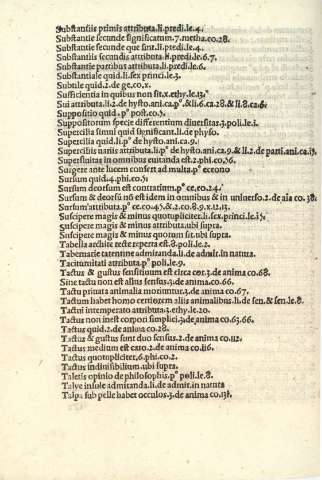 Substantiis primis attributa.li.predi.le.4.
Substantie secunde significatum.7.metha.co.28.
Substantie secunde que sint.li.predi.le.4.
Substantiis secundis attributa.li.predi.le.6.7.
Substantie partibus attributa.li.predi.le.6.
Substantiale quid.li.sex princi.le.3.
Subtile quid.2.de ge.co.x.
Sufficientia in quibus non sit.x.ethy.le.13.
Sui attributa.li.2.de hysto.ani.ca.pº.&li.6.ca.28.&li.8.ca.6.
Suppositio quid.pº post.co.5.
Suppositorum specie differentium diversitas.3.poli.le.i.
Supercilia simul quid significant.li.de physo.
Supercilia quid.li.ani.ca.9.
Superciliis naris attributa.li.pº de hysto.ani.ca.9.& li.2.de parti.ani.ca.15
Superfluitas in omnibus euitanda est.2.phi.co.56.
Surgere ante lucem confert ad multa.pº econo
Sursum quid.4.phi.co.5.
Sursum deorsum est contrarium.pº ce.co.24.
Sursum & deorsū nō est idem in omnibus & in uniuerso.2.de aīa co.38.
Sursum attributa.pº ce.co.45.& co.2.co.8.9.x.12.13.
Suscipere magis & minus quotupliciter.li.sex.princi.le.15.
Suscipere magis & minus attributa.ubi supra.
Suscipere magis & minus quorum sit.ubi supra.
Tabella archite recte reperta est.8.poli.le.2.
Tabernarie tarentine admiranda.li.de admir.in natura.
Taciturnitati attributa.pº poli.le.9.
Tactus & gustus sensitiuum est circa cor.3.de anima co.68.
Sine tactu non est alius sensus.3.de anima co.66.
Tactu priuata animalia moriuntur.3.de anima co.67.
Tactum habet homo certiorem aliis animalibus.li.de sen.& sen.le.8.
Tactui intemperato attributa.3.ethy.le.20.
Tactus non inest corpori simplici.3.de anima co.63.66.
Tactus quid.2.de anima co.28.
Tactus & gustus sunt duo sensus.2.de anima co.112.
Tactus medium est caro.2.de anima co.116.
Tactus quotupliciter.6.phi.co.2.
Tactus indiuisibilium.ubi supra.
Taletis opinio de philosophis.pº poli.le.8.
Talve insule admiranda.li.de admir.in natura
Talpa sub pelle habet occulos.3.de anima co.131.